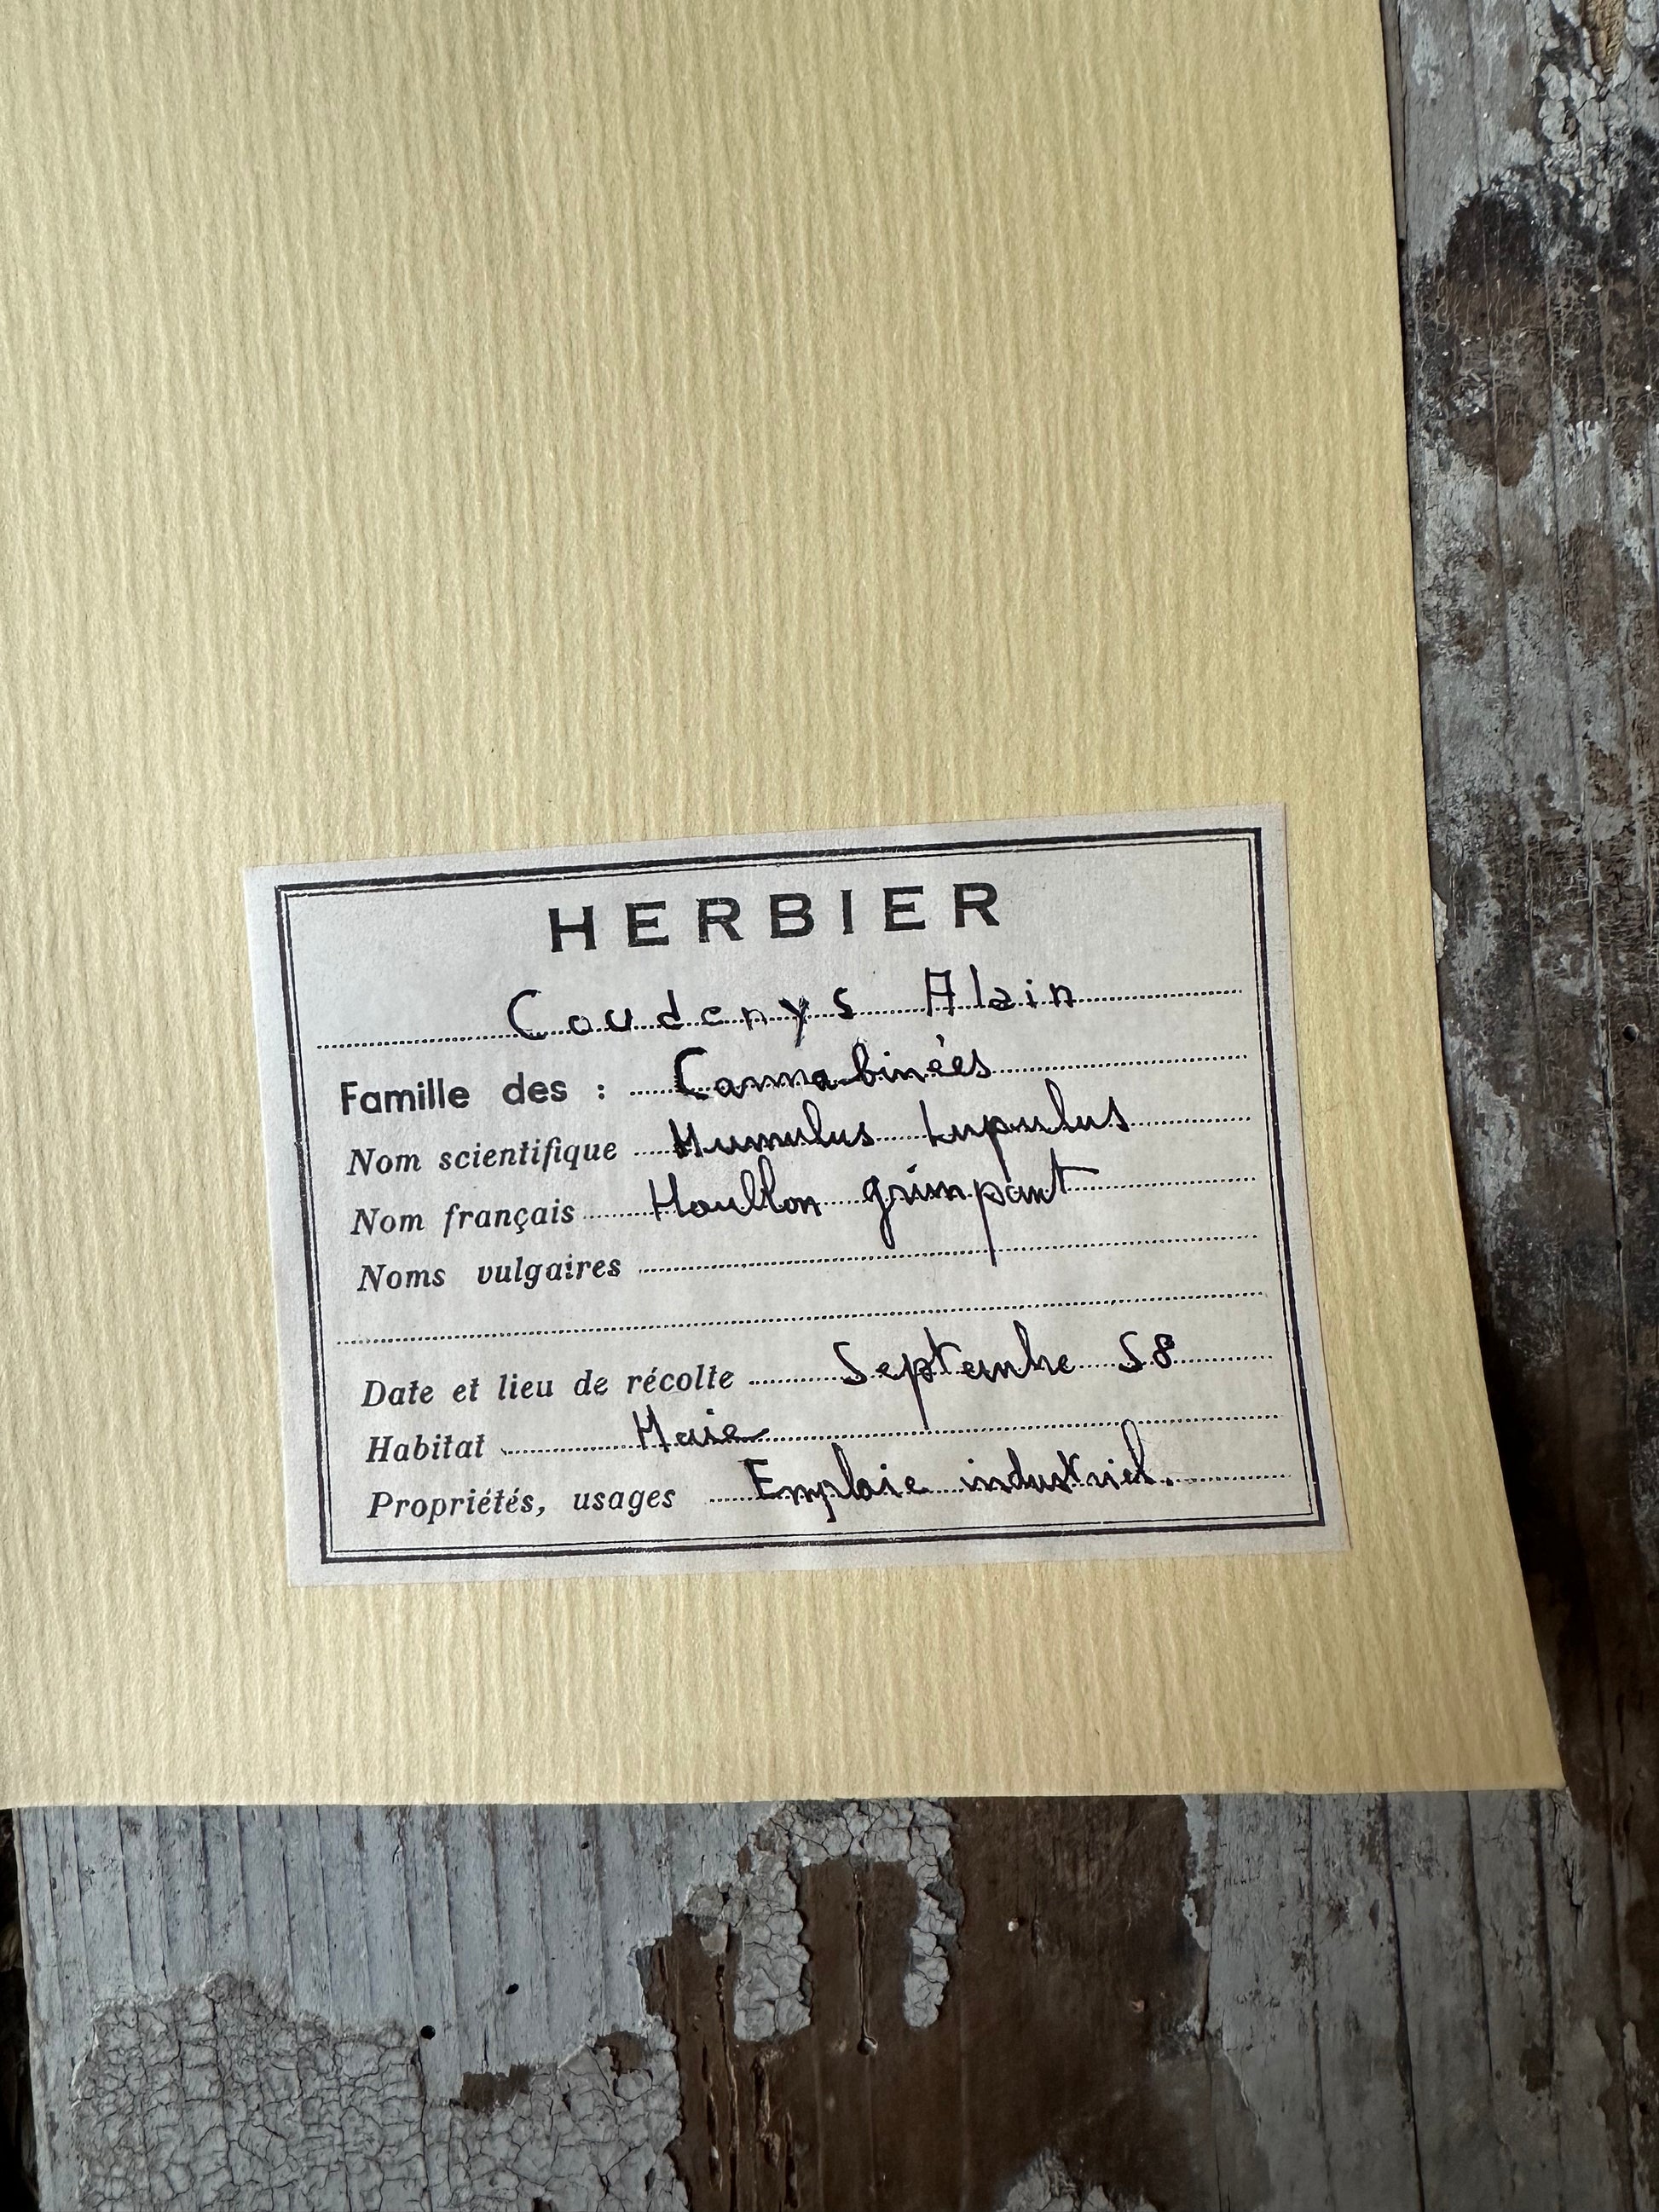 HERBIER
Coudenys Alain
Famille des : Cannabinées
Nom scientifique Humulus Lupulus
Nom français Houblon grimpant
Noms vulgaires
Date et lieu de récolte Septembre 58
Habitat Haie
Propriétés, usages Emploie industriel.